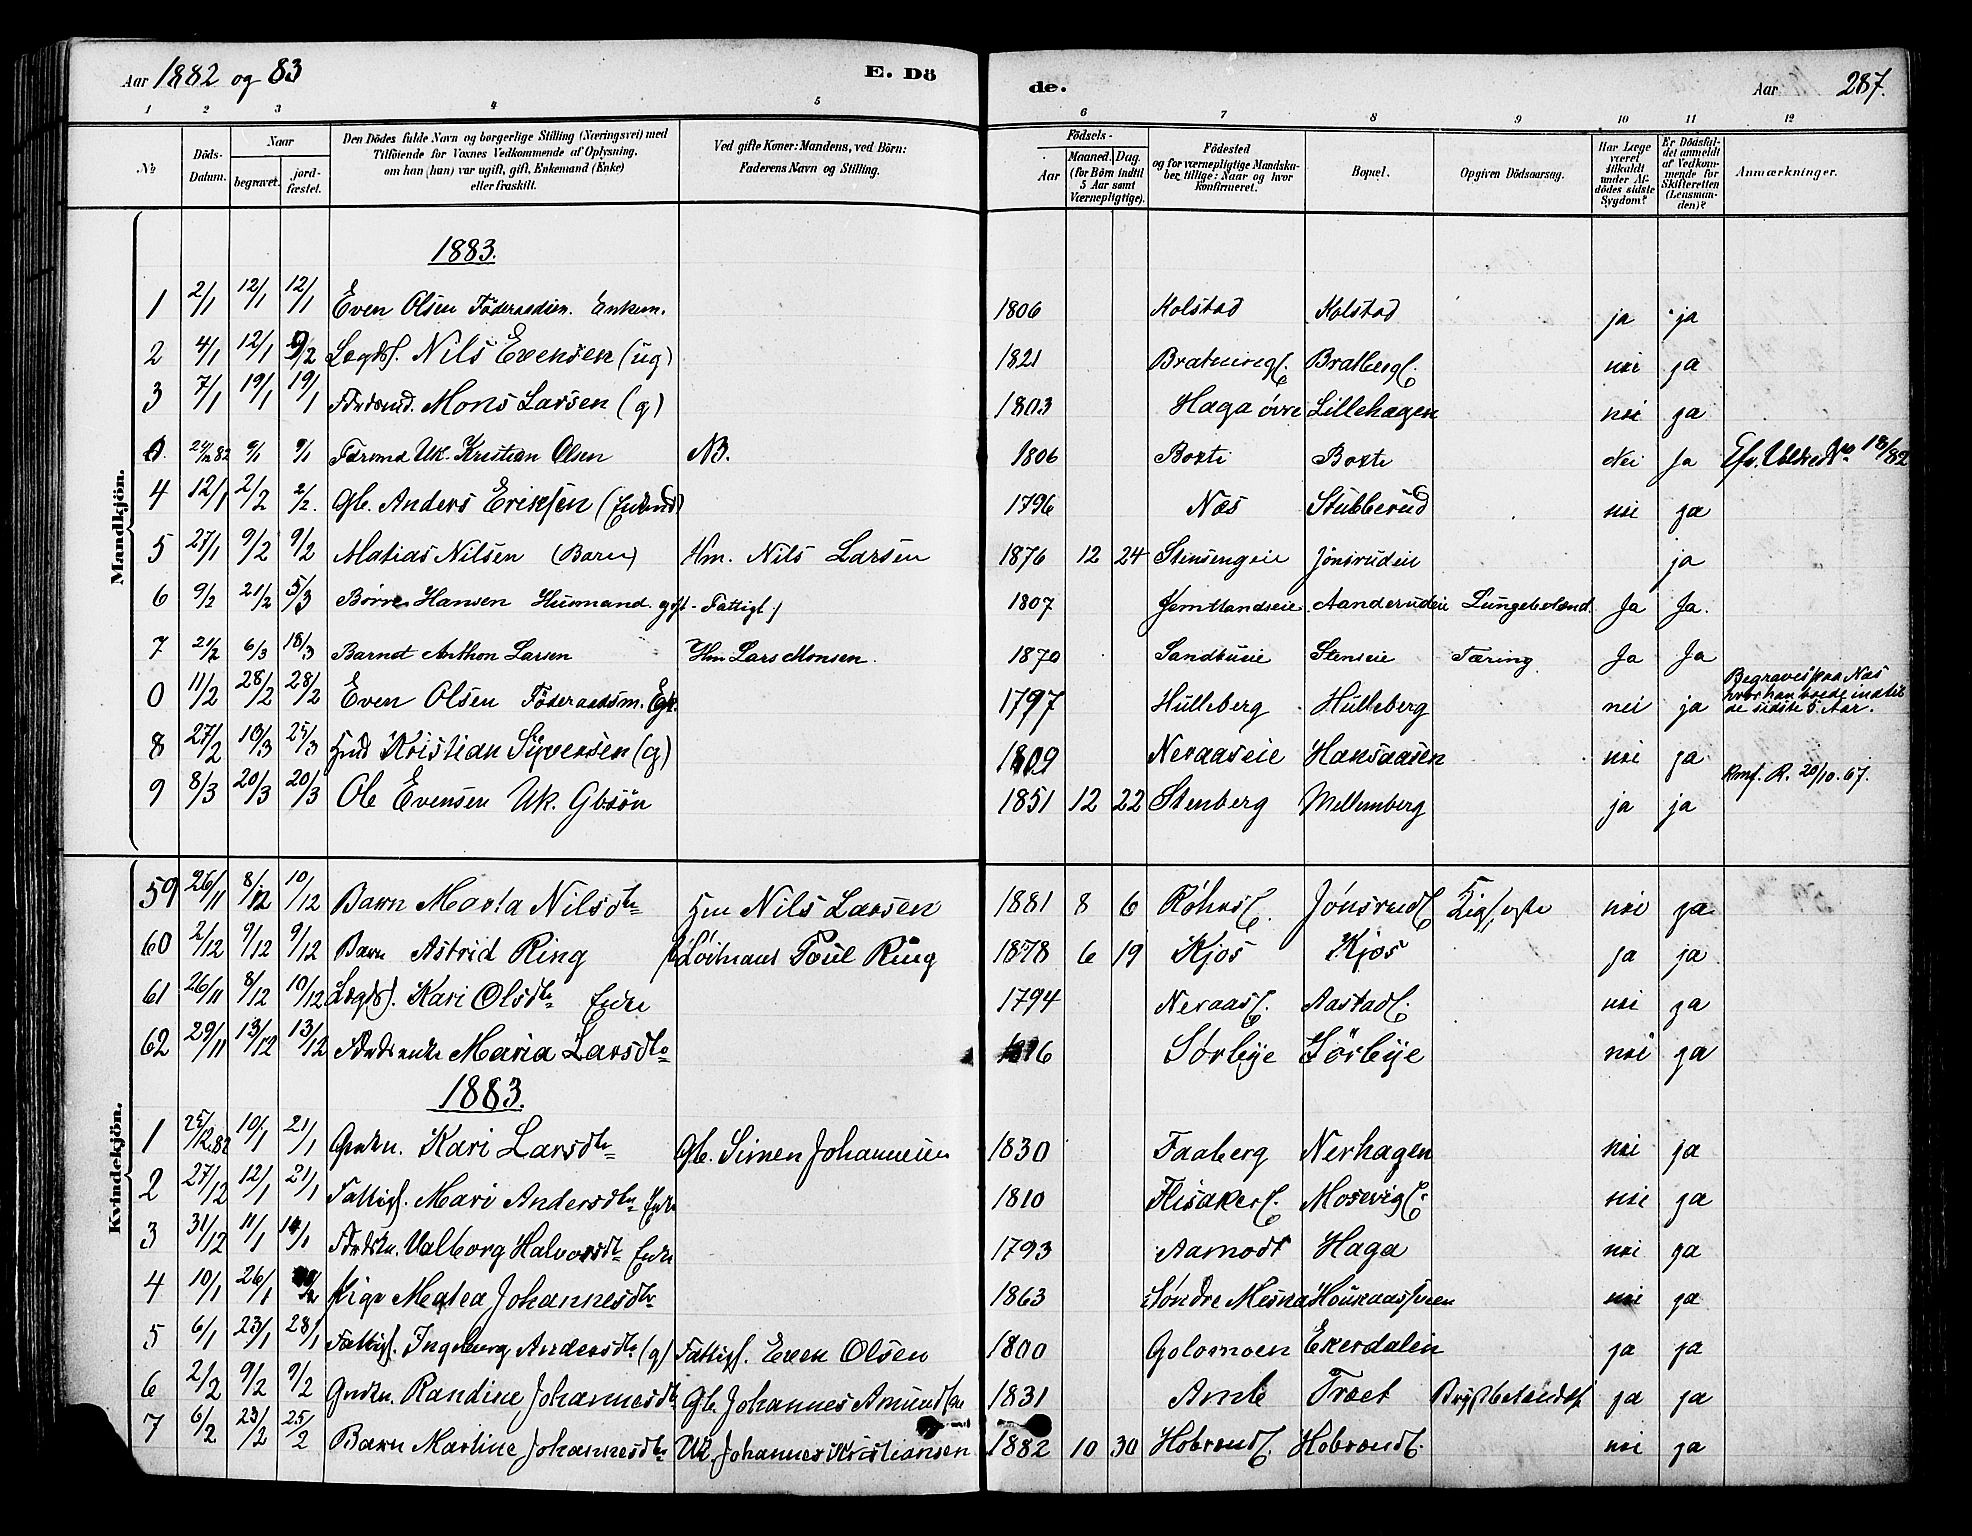 Aar 1882 og 83 E. Dö de. Aar 287.
1 2 3 4 5 6 7 8 9 10 11 12
No Döds-Datum. Naar begravet. jordfæstet. Den Dödes fulde Navn og borgerlige Stilling (Næringsvei) med Tilföiende for Voxnes Vedkommende af Oplysning, om han (hun) var ugift, gift, Enkemand (Enke) eller fraskilt. Ved gifte Koner: Mandens, ved Börn: Faderens Navn og Stilling. Födsels- Aar Maaned. Dag. (for Börn indtil 5 Aar samt Værnepligtige). Födested og for værnepligtige Mandskaber tillige: Naar og hvor konfirmeret. Bopæl. Opgiven Dödsaarsag. Har Læge været tilkaldt under Afdödes sidste Sygdom? Er Dödsfaldet anmeldt af Vedkommende for Skifteretten (Lensmanden)? Anmærkninger.
Mandkjön.
1883.
1 2/1 12/1 12/1 Even Olsen Föderaadsm. Enkem. 1806 Kolstad Kolstad ja ja
2 4/1 12/1 9/2 Lægdsl. Nils Evensen (ug) 1821 Bratbergl. nei ja
3 7/1 19/1 19/1 Mons Larsen (g) 1803 Haga övre Lillehagen nei ja
0. 24/12 82 9/1 9/1 Uk. Kristian Olsen NB. 1806 Nei Ja 18/82
4 12/1 2/2 2/2. Gb. Anders Eriksen (Enkmd) 1796 Næs Stubberud nei ja
5 27/1 9/2 9/2 Matias Nilsen (Barn) Hm. Nils Larsen 1876 12 24 Stensengeie Jönsrudeie ja
6 9/2 21/2 5/3 Börre Hansen Husmand. gift - Fattigl. 1807 Jemtlandseie Aanderudeie Lungebetænd. Ja Ja.
7 21/2 6/3 18/3 Barnet Anthon Larsen Hm Lars Monsen. 1870 Sandbueie Stenseie Tæring. Ja Ja
0 11/2 28/2 28/2 Even Olsen Föderaadsm. 1797 Hulleberg Hulleberg nei ja Begraves paa Næs hvor han boede indtil de sidste 5 Aar.
8 27/2 13/3 25/3 Kristian Syversen (g) 1809 Neraaseie Hansaasen nei ja
9 8/3 20/3 20/3 Ole Evensen Uk. Gbsön 1851 12 22 Stenberg Mellemberg ja ja Kmf. R. 20/10. 67.
Kvindekjön.
59 26/11 8/12 10/12 Barn Marta Nilsdtr Hm Nils Larsen 1881 8 6 Jönsrudl nei ja
60 2/12 9/12 9/12 Barn Astrid Ring Löitnant Poul Ring 1878 6 19 Kjos Kjos ja ja
61 26/11 8/12 10/12 Lægdsl. Kari Olsdtr Enke 1794 Neraasl. Aastadl. nei ja
62 29/11 13/12 13/12 Maria Larsdtr Sörbye Sörbye nei ja
1883.
1 25/12 82 10/1 21/1 Kari Larsdtr Gb. Simen Johannesen 1830 Faaberg Nerhagen nei ja
2 27/12 12/1 21/1 Fattigl. Mari Andersdtr Enke 1810 Flisakerl. Mosevigl. nei ja
3 31/12 11/1 14/1 Valborg Halvorsdtr Enke 1793 Aamodt Haga nei ja
4 10/1 26/1 Pige Matea Johannesdtr 1863 Söndre Mesna nei ja
5 6/1 23/1 28/1 Fattigl. Ingeborg Andersdtr (g) Fattigl. Even Olsen 1800 Golomoen Ekerdalen ja ja
6 2/2 9/2 9/2 Randine Johannesdtr Gb. Johannes Amundsen 1831 Amb Træet Brystbetændels. ja ja
7 6/2 23/2 25/2 Barn Martine Johannesdtr Uk. Johannes Kristiansen 1882 10 30 Hobrandl. Hobrandl. nei ja